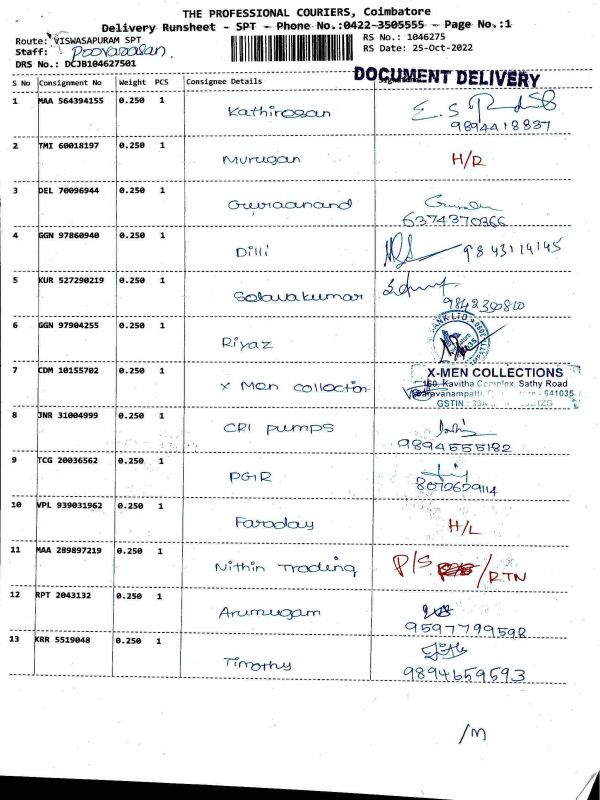 THE PROFESSIONAL COURIERS, Coimbatore
Delivery Runsheet - SPT - Phone No.:0422-3505555 - Page No.:1
Route: VISWASAPURAM SPT RS No.: 1046275
Staff: Poovarasan. RS Date: 25-Oct-2022
DRS No.: DCJB104627501
DOCUMENT DELIVERY
S No Consignment No Weight PCS Consignee Details
1 MAA 564394155 0.250 1 Kathiresan
9894418837
2 TMI 60018197 0.250 1 Murugan H/R
3 DEL 70096944 0.250 1 Guruanand
6374370366
4 GGN 97860940 0.250 1 Dilli 9843114145
5 KUR 527290219 0.250 1 Selavakumar
9842350810
6 GGN 97904255 0.250 1 Riyaz
7 CDM 10155702 0.250 1 X Men collection
X-MEN COLLECTIONS
160, Kavitha Complex, Sathy Road
Saravanampatti, - 641035
GSTIN : 33A
8 JNR 31004999 0.250 1 CRI pumps
9894555182
9 TCG 20036562 0.250 1 PGR
8072629114
10 VPL 939031962 0.250 1 Faraday H/L
11 MAA 289897219 0.250 1 Nithin Trading P/S /RTN
12 RPT 2043132 0.250 1 Arumugam
9597799598
13 KRR 5519048 0.250 1 Timothy
9894659593
/M